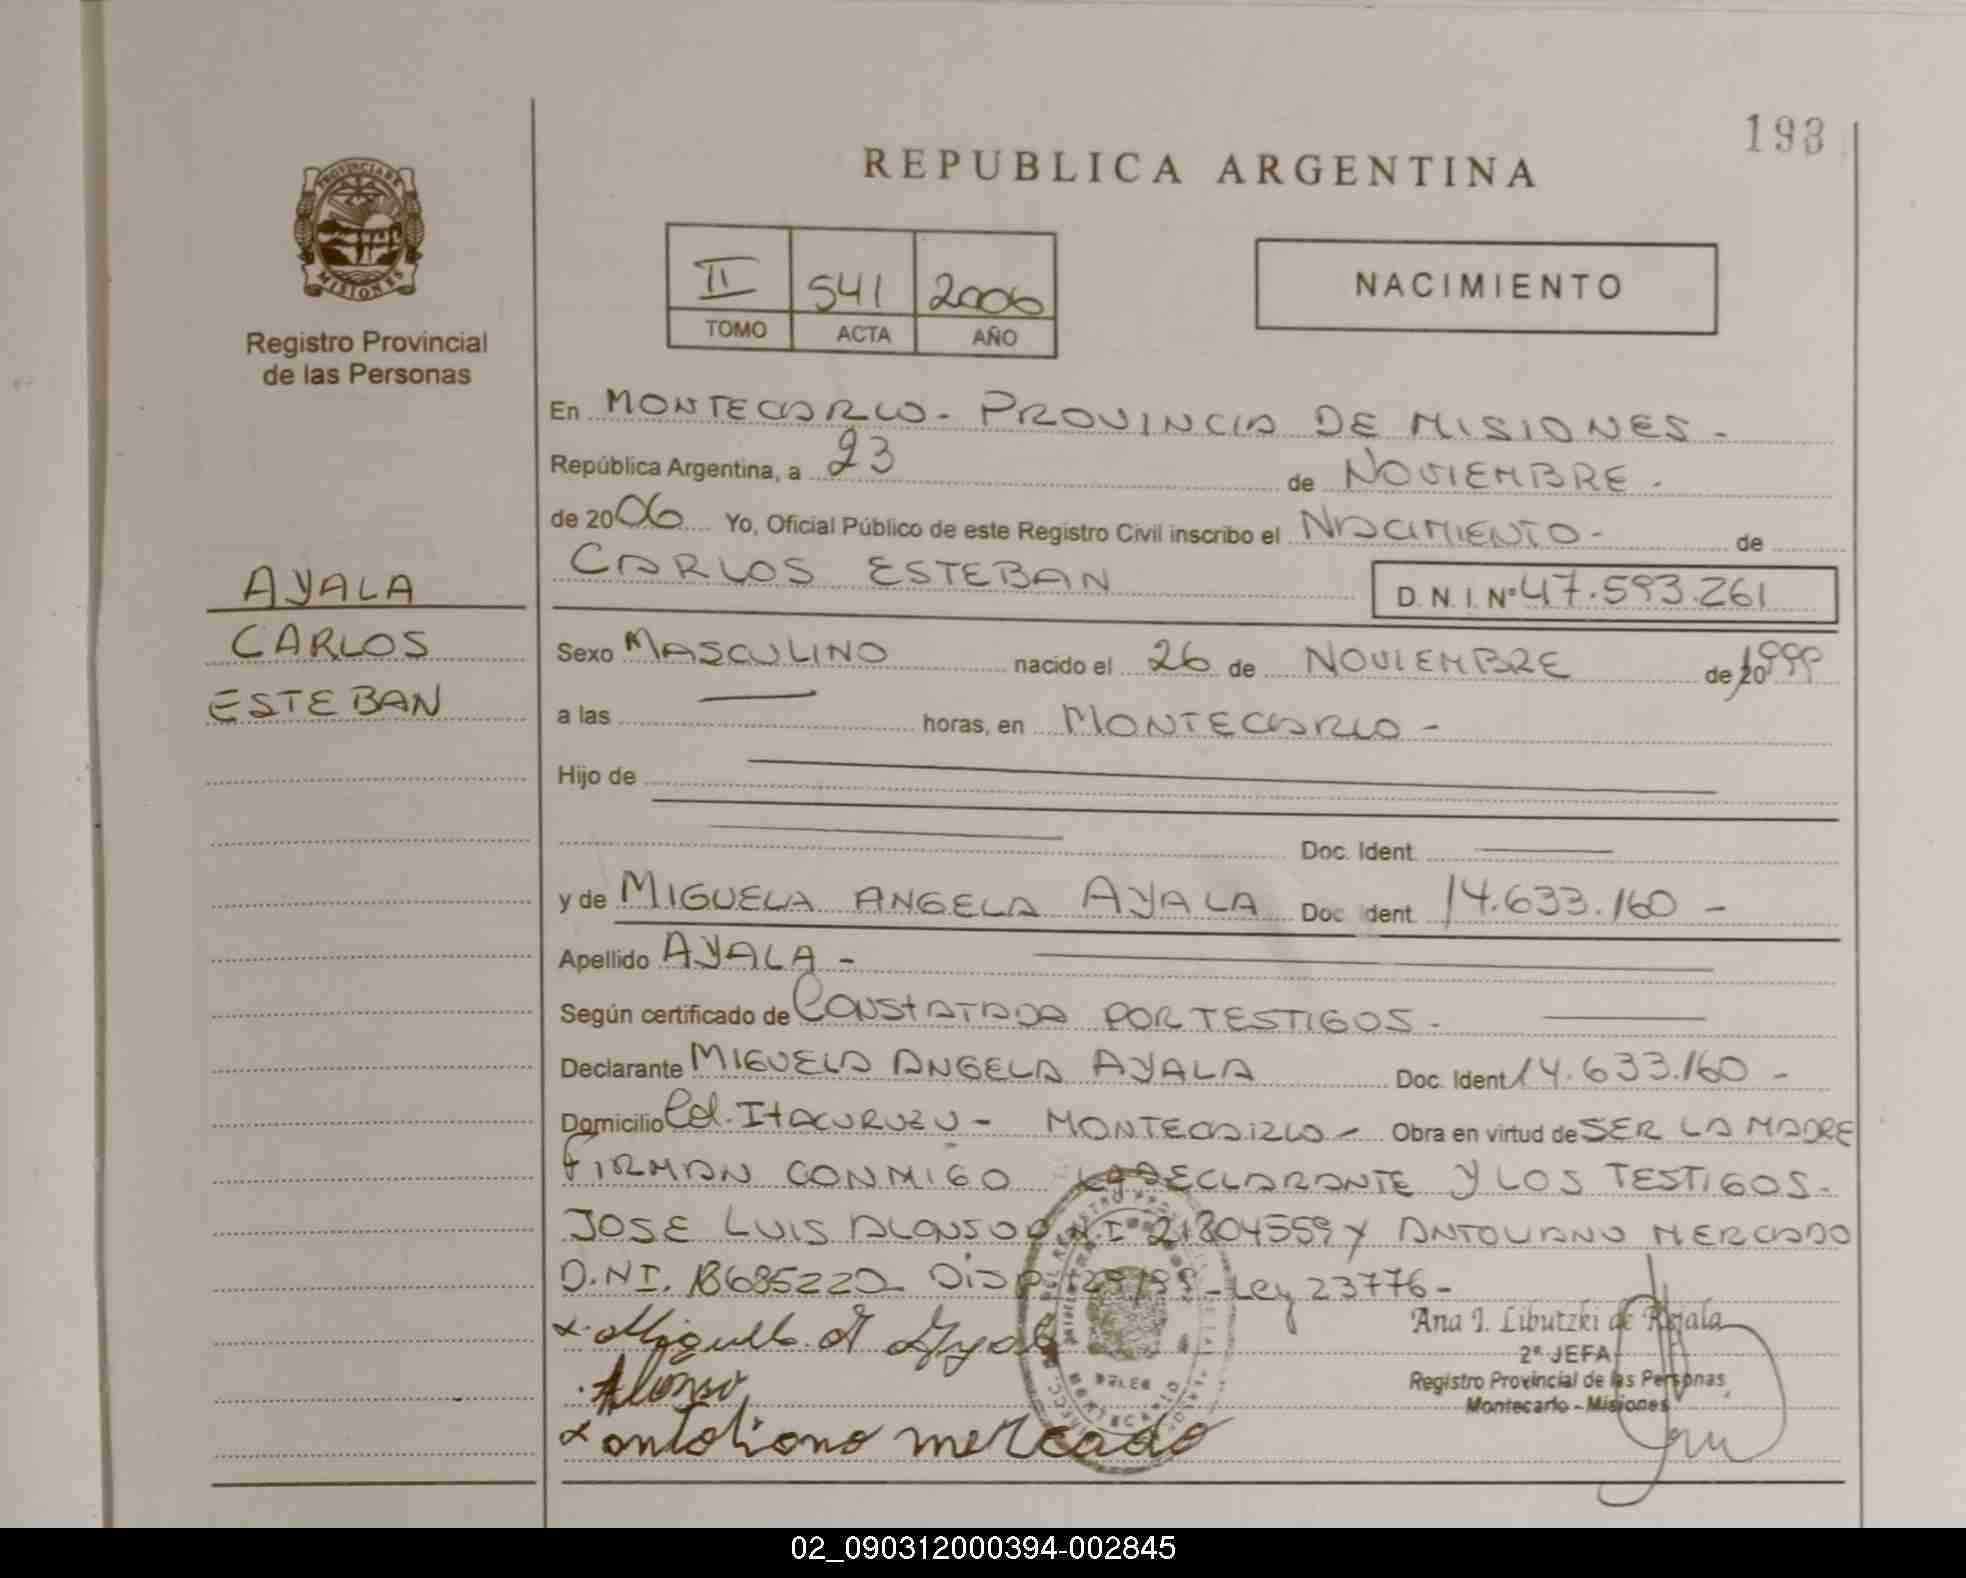 193
REPUBLICA ARGENTINA
PROVINCIA DE
MISIONES
Registro Provincial
de las Personas
II 541 2006
TOMO ACTA AÑO
NACIMIENTO
En MONTECARLO - PROVINCIA DE MISIONES -
República Argentina, a 23 de NOVIEMBRE -
de 2006 Yo, Oficial Público de este Registro Civil inscribo el NACIMIENTO - de
CARLOS ESTEBAN D.N.I. Nº 47.593.261
AYALA
CARLOS
ESTEBAN
Sexo MASCULINO nacido el 26 de NOVIEMBRE de 1999
a las — horas, en MONTECARLO -
Hijo de
Doc. Ident.
y de MIGUELA ANGELA AYALA Doc Ident. 14.633.160 -
Apellido AYALA -
Según certificado de CONSTATADA POR TESTIGOS -
Declarante MIGUELA ANGELA AYALA Doc. Ident 14.633.160 -
Domicilio Col. ITACURUZU - MONTECARLO - Obra en virtud de SER LA MADRE
FIRMAN CONMIGO LA DECLARANTE Y LOS TESTIGOS -
JOSE LUIS ALONSO D.N.I. 21304559 Y ANTOLIANO MERCADO
D.N.I. 18685220 - Disp. - Ley 23776 -
x Miguela A Ayala
Alonso
x antoliano mercado
Ana I. Libutzki de Rajala
2ª JEFA
Registro Provincial de las Personas
Montecarlo - Misiones
02_090312000394-002845